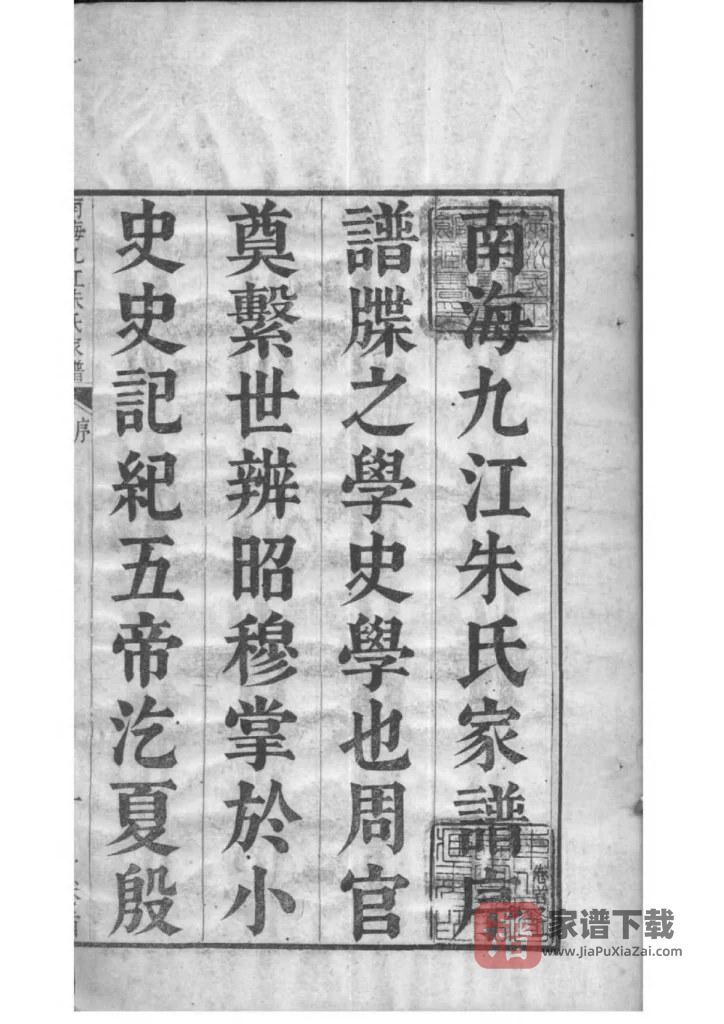 南海九江朱氏家譜序
卷首
譜牒之學史學也周官
奠繫世辨昭穆掌於小
史史記紀五帝汔夏殷
南海九江朱氏家譜
序
家谱下载
www.JiaPuXiaZai.com